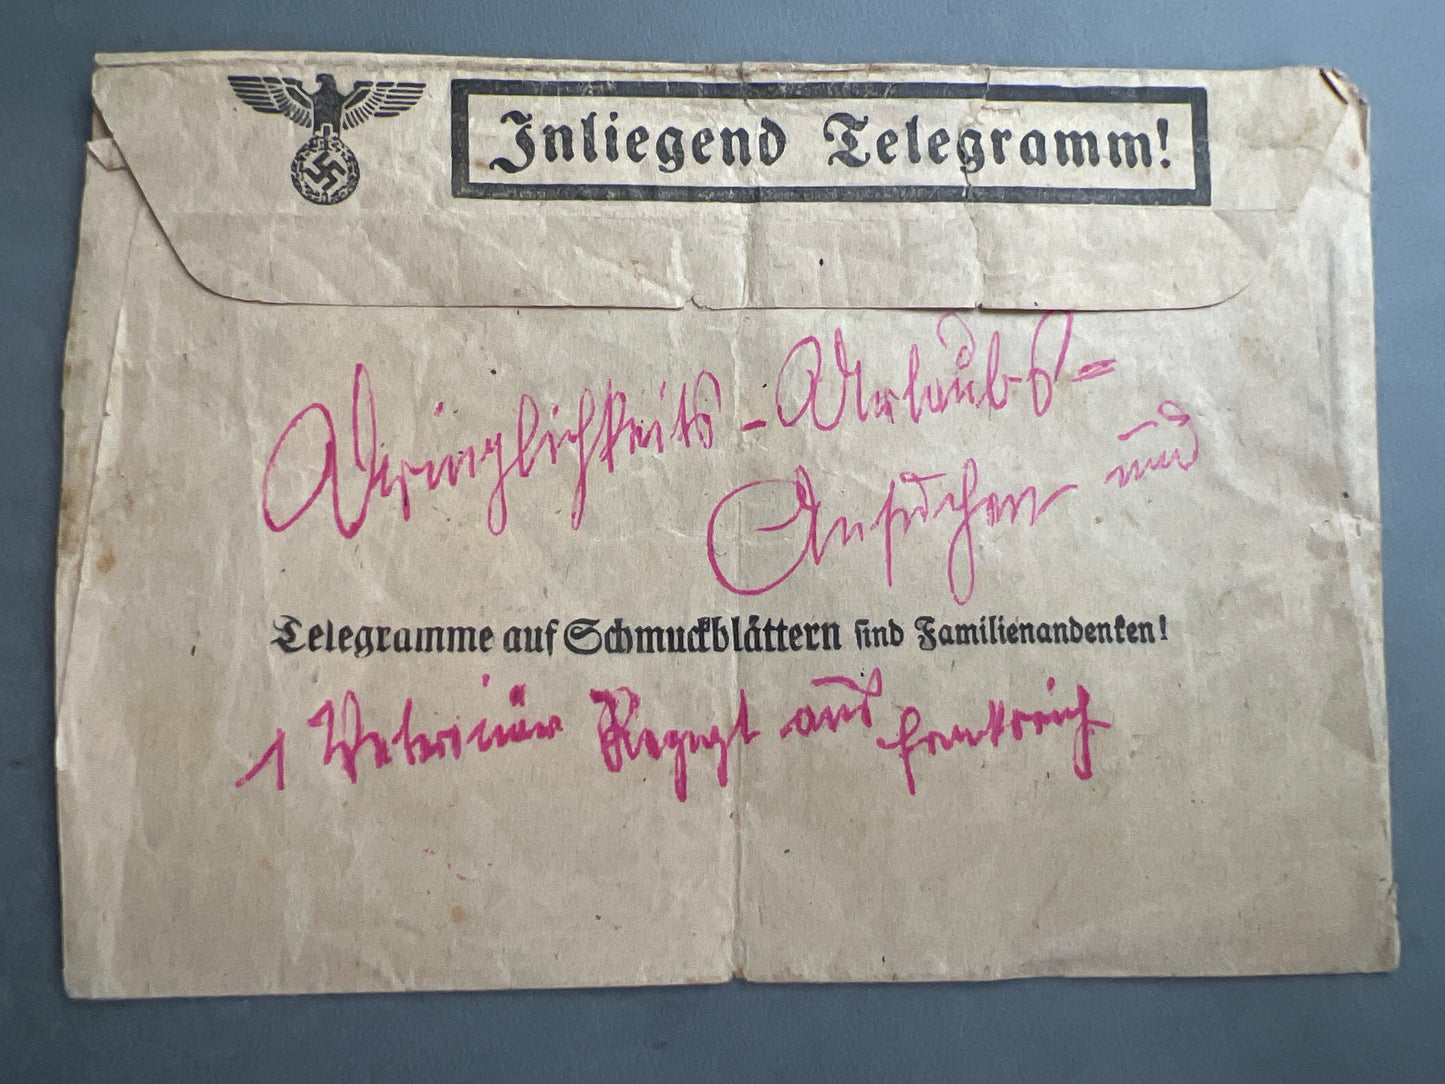 Inliegend Telegramm!
Dringlichkeits-Urlaubs-
Ansuchen und
Telegramme auf Schmuckblättern sind Familienandenken!
1 Veterinär Rezept aus Frankreich